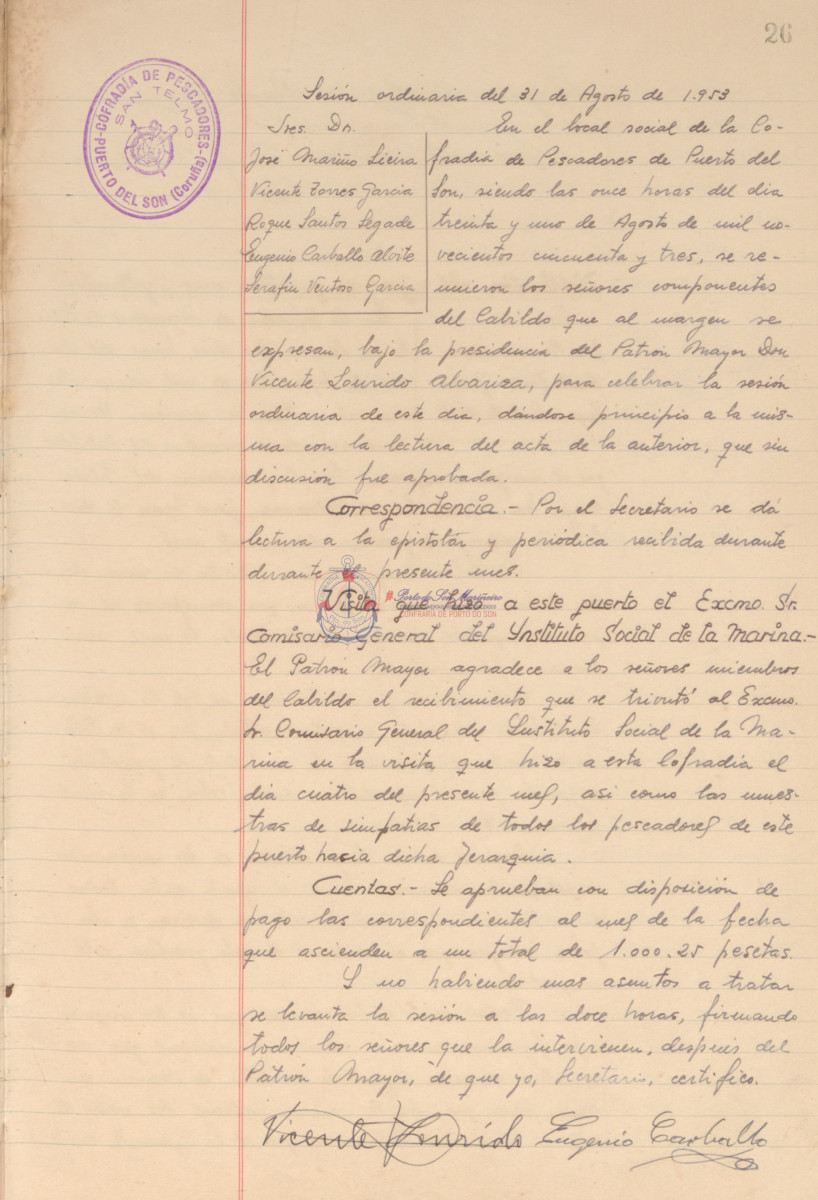 26
COFRADÍA DE PESCADORES
SAN TELMO
PUERTO DEL SON (Coruña)
Sesión ordinaria del 31 de Agosto de 1.953
Sres. Dn.
José Mariño Lieira
Vicente Torres Garcia
Roque Santos Segade
Eugenio Carballo Alvite
Serafin Ventoso Garcia
En el local social de la Co-
fradia de Pescadores de Puerto del
Son, siendo las once horas del dia
treinta y uno de Agosto de mil no-
vecientos cincuenta y tres, se re-
unieron los señores componentes
del Cabildo que al margen se
expresan, bajo la presidencia del Patrón Mayor Don
Vicente Lourido Alvariza, para celebrar la sesión
ordinaria de este dia, dándose principio a la mis-
ma con la lectura del acta de la anterior, que sin
discusión fue aprobada.
Correspondencia.- Por el Secretario se dá
lectura a la epistolár y periódica recibida durante
durante el presente mes.
Visita que hizo a este puerto el Excmo. Sr.
Comisario General del Ynstituto Social de la Marina.-
El Patrón Mayor agradece a los señores miembros
del Cabildo el recibimiento que se tributó al Excmo.
Sr. Comisario General del Instituto Social de la Ma-
rina en la visita que hizo a esta Cofradia el
dia cuatro del presente mes, asi como las mues-
tras de simpatias de todos los pescadores de este
puerto hacia dicha Jerarquia.
Cuentas.- Se aprueban con disposición de
pago las correspondientes al mes de la fecha
que ascienden a un total de 1.000.25 pesetas.
Y no habiendo mas asuntos a tratar
se levanta la sesión a las doce horas, firmando
todos los señores que la intervienen, después del
Patrón Mayor, de que yo, Secretario, certifico.
Vicente Lourido Eugenio Carballo
Porto do Son Mariñeiro
CONFRARÍA DE PORTO DO SON